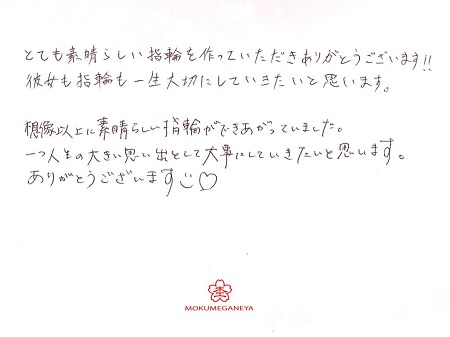 とても素晴らしい指輪を作っていただきありがとうございます!!
彼女も指輪も一生大切にしていきたいと思います。
想像以上に素晴らしい指輪ができあがっていました。
一つ人生の大きい思い出として大事にしていきたいと思います。
ありがとうございます
MOKUMEGANEYA